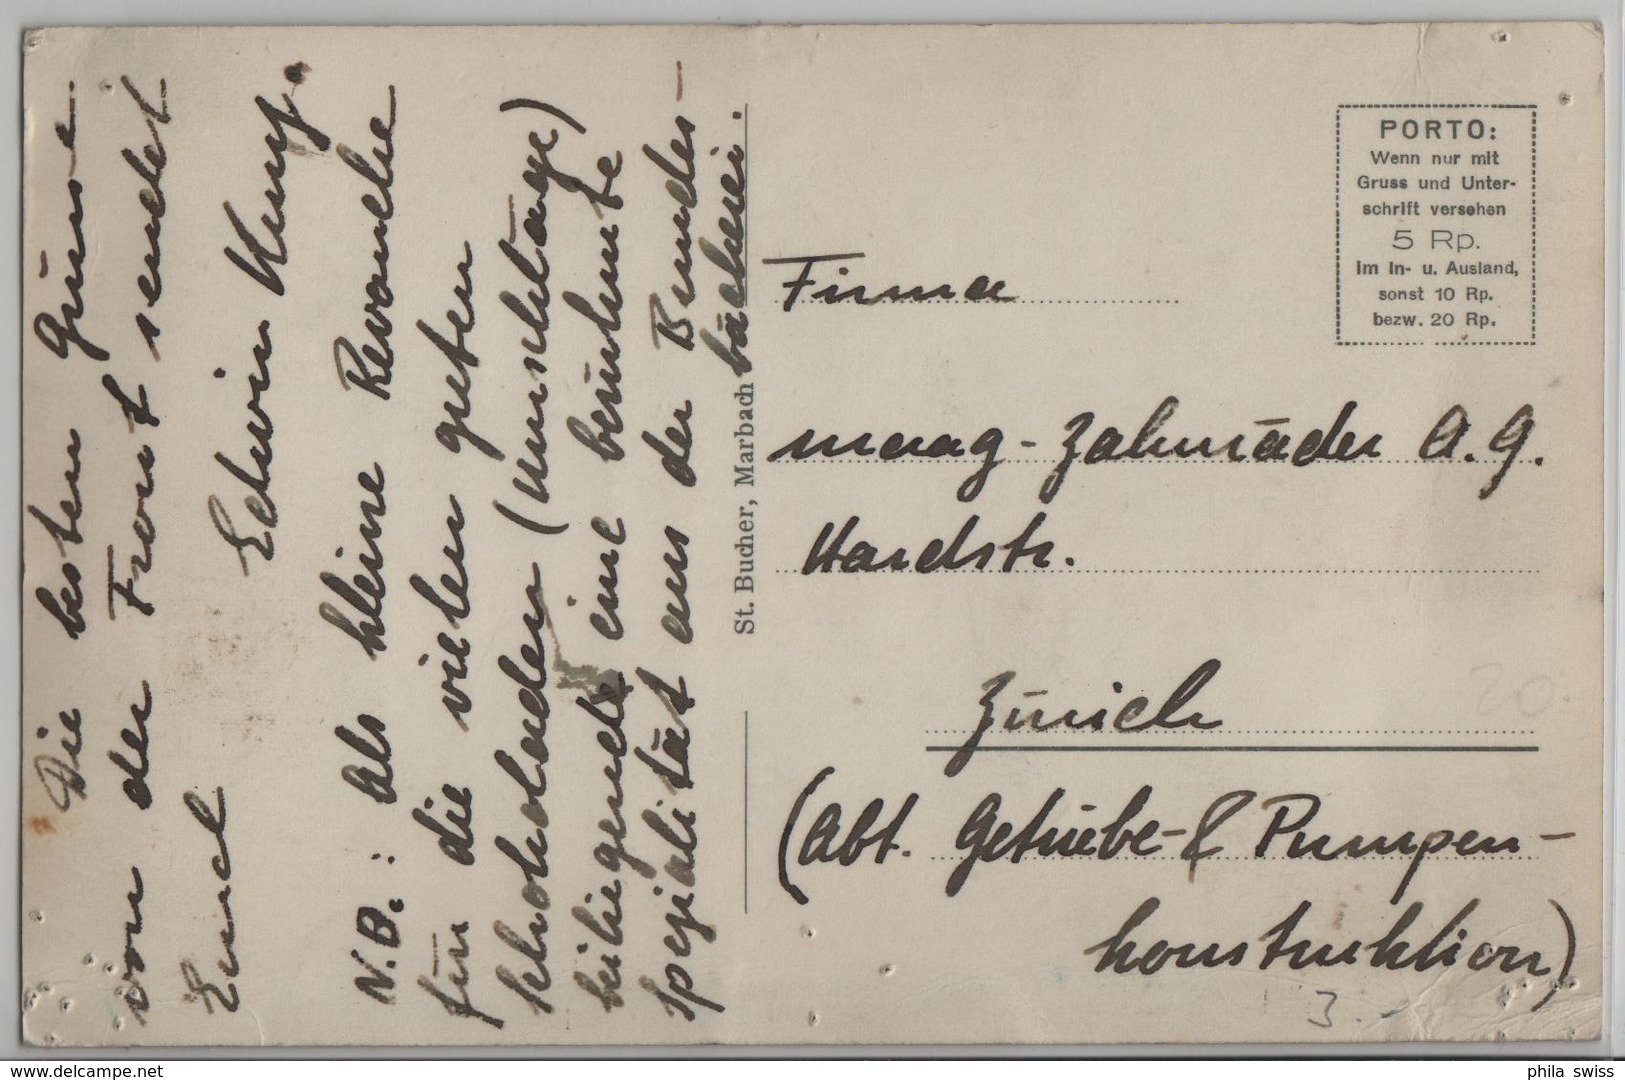 Die besten Grüsse
von der Front sendet
Euch
Edwin Kunz.
N.B.: Als kleine Revanche
für die vielen guten
Schokoladen (Umschläge)
beiliegende eine berühmte
Spezialität aus der Bundes-
bäckerei.
St. Bucher, Marbach
PORTO:
Wenn nur mit
Gruss und Unter-
schrift versehen
5 Rp.
im In- u. Ausland,
sonst 10 Rp.
bezw. 20 Rp.
Firma
Maag-Zahnräder A.G.
Hardstr.
Zürich
(Abt. Getriebe- & Pumpen-
konstruktion)
20.-
3.-
delcampe.net
phila_swiss